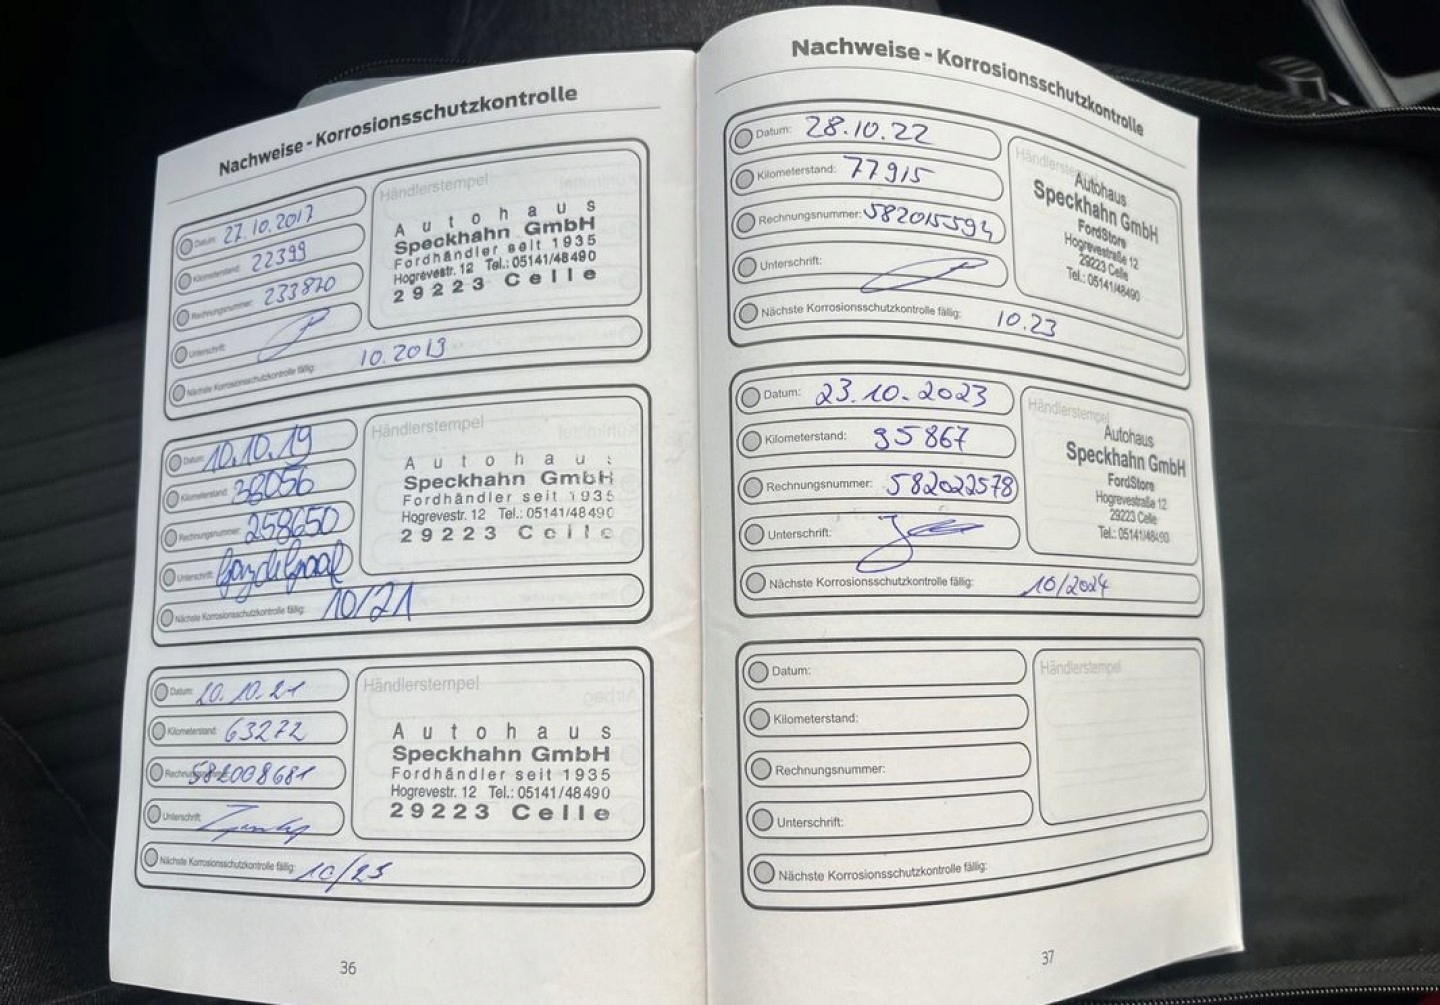 Nachweise - Korrosionsschutzkontrolle
Datum: 27.10.2017
Kilometerstand: 22399
Rechnungsnummer: 233870
Unterschrift:
Nächste Korrosionsschutzkontrolle fällig: 10.2019
Händlerstempel
Autohaus
Speckhahn GmbH
Fordhändler seit 1935
Hogrevestr. 12 Tel.: 05141/48490
29223 Celle
Datum: 10.10.19
Kilometerstand: 38056
Rechnungsnummer: 258650
Unterschrift:
Nächste Korrosionsschutzkontrolle fällig: 10/21
Händlerstempel
Autohaus
Speckhahn GmbH
Fordhändler seit 1935
Hogrevestr. 12 Tel.: 05141/48490
29223 Celle
Datum: 20.10.21
Kilometerstand: 63272
Rechnungsnummer: 582008681
Unterschrift:
Nächste Korrosionsschutzkontrolle fällig: 10/23
Händlerstempel
Autohaus
Speckhahn GmbH
Fordhändler seit 1935
Hogrevestr. 12 Tel.: 05141/48490
29223 Celle
36
Nachweise - Korrosionsschutzkontrolle
Datum: 28.10.22
Kilometerstand: 77915
Rechnungsnummer: 582015594
Unterschrift:
Nächste Korrosionsschutzkontrolle fällig: 10.23
Händlerstempel
Autohaus
Speckhahn GmbH
FordStore
Hogrevestraße 12
29223 Celle
Tel.: 05141/48490
Datum: 23.10.2023
Kilometerstand: 95867
Rechnungsnummer: 582022578
Unterschrift:
Nächste Korrosionsschutzkontrolle fällig: 10/2024
Händlerstempel
Autohaus
Speckhahn GmbH
FordStore
Hogrevestraße 12
29223 Celle
Tel.: 05141/48490
Datum:
Kilometerstand:
Rechnungsnummer:
Unterschrift:
Nächste Korrosionsschutzkontrolle fällig:
Händlerstempel
37